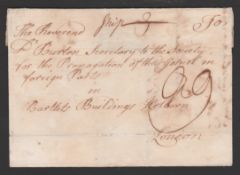 The Reverend Ship To
Dr Burton Secretary to the Society
for the Propagation of the Gospel in
foreign Parts
in
Bartlets Buildings Holborn
London